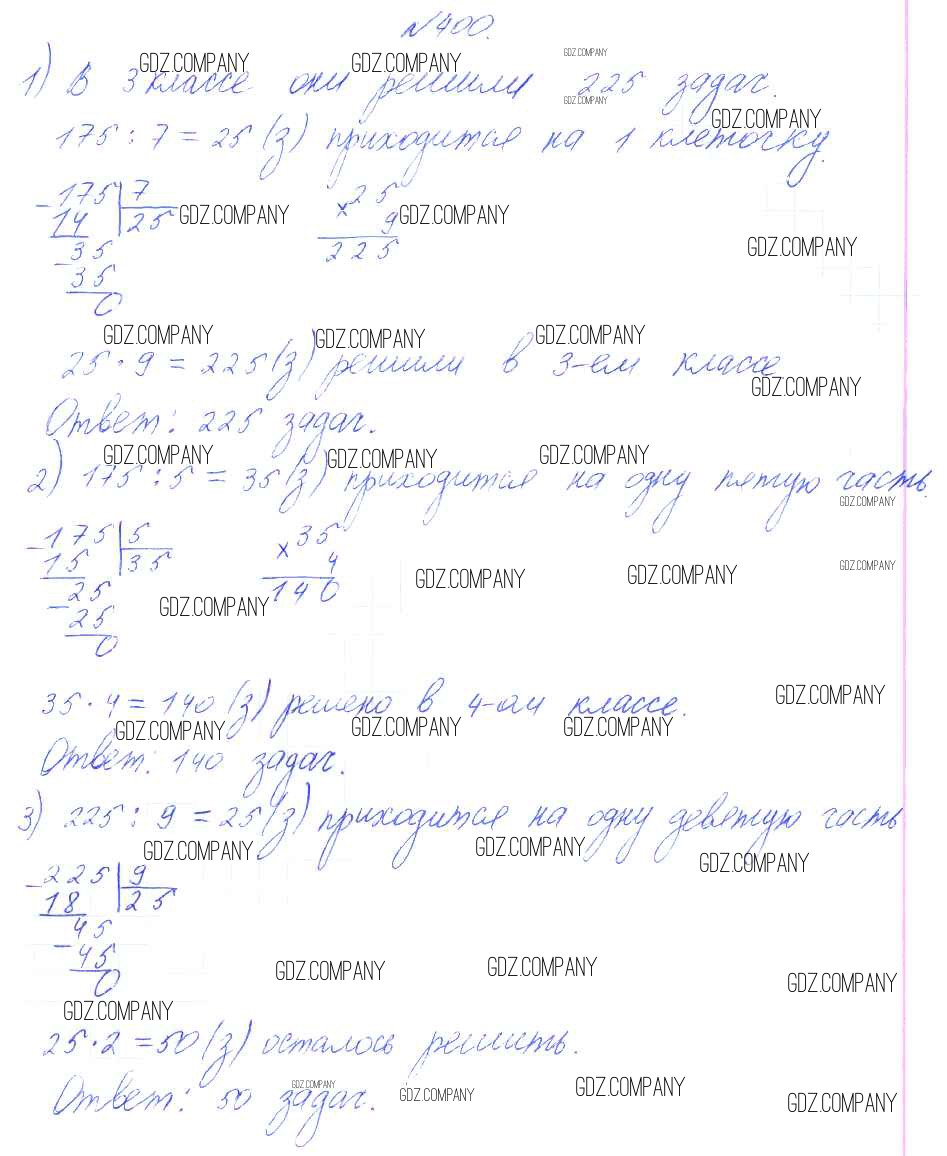 №400.
GDZ.COMPANY GDZ.COMPANY GDZ.COMPANY
1) В 3 классе они решили 225 задач.
GDZ.COMPANY
GDZ.COMPANY
175 : 7 = 25 (з) приходится на 1 клеточку.
175 | 7
14 | 25
35
35
0
× 25
9
225
GDZ.COMPANY GDZ.COMPANY
GDZ.COMPANY
GDZ.COMPANY GDZ.COMPANY GDZ.COMPANY
25 · 9 = 225 (з) решили в 3-ем классе
GDZ.COMPANY
Ответ: 225 задач.
GDZ.COMPANY GDZ.COMPANY GDZ.COMPANY
2) 175 : 5 = 35 (з) приходится на одну пятую часть.
GDZ.COMPANY
- 175 | 5
15 | 35
- 25
25
0
× 35
4
140
GDZ.COMPANY
GDZ.COMPANY GDZ.COMPANY
GDZ.COMPANY
GDZ.COMPANY
35 · 4 = 140 (з) решено в 4-ом классе.
GDZ.COMPANY GDZ.COMPANY GDZ.COMPANY
Ответ: 140 задач.
3) 225 : 9 = 25 (з) приходится на одну девятую часть
GDZ.COMPANY GDZ.COMPANY GDZ.COMPANY
- 225 | 9
18 | 25
- 45
45
0
GDZ.COMPANY GDZ.COMPANY GDZ.COMPANY
GDZ.COMPANY
25 · 2 = 50 (з) осталось решить.
GDZ.COMPANY GDZ.COMPANY GDZ.COMPANY GDZ.COMPANY
Ответ: 50 задач.